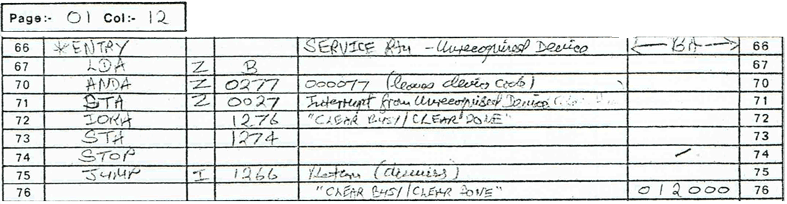 Page:- 01 Col:- 12
66 *ENTRY SERVICE Rtn - Unrecognised Device BA 66
67 LDA Z B 67
70 ANDA Z 0277 000077 (leaves device code) 70
71 STA Z 0027 Interrupt from Unrecognised Device 71
72 IORA 1276 "CLEAR BUSY/CLEAR DONE" 72
73 STA 1274 73
74 STOP 74
75 JUMP I 1266 Return (dismiss) 75
76 "CLEAR BUSY/CLEAR DONE" 012000 76